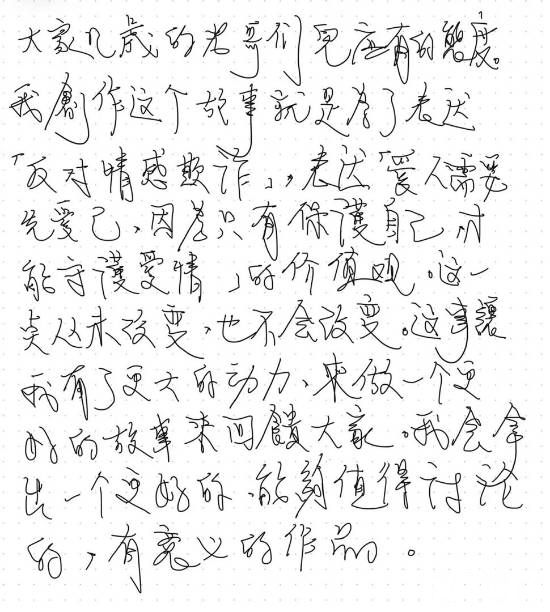 大家几歲的老哥们兒应有的態度。
我創作这个故事就是為了表达
「反对情感欺诈」,表达「愛人需要
先愛己,因為只有保護自己,才
能守護愛情」的价值观。这一
点从未改变,也不会改变。这事讓
我有了更大的动力、来做一个更
好的故事来回饋大家。我会拿
出一个更好的、能夠值得讨论
的,有意义的作品。